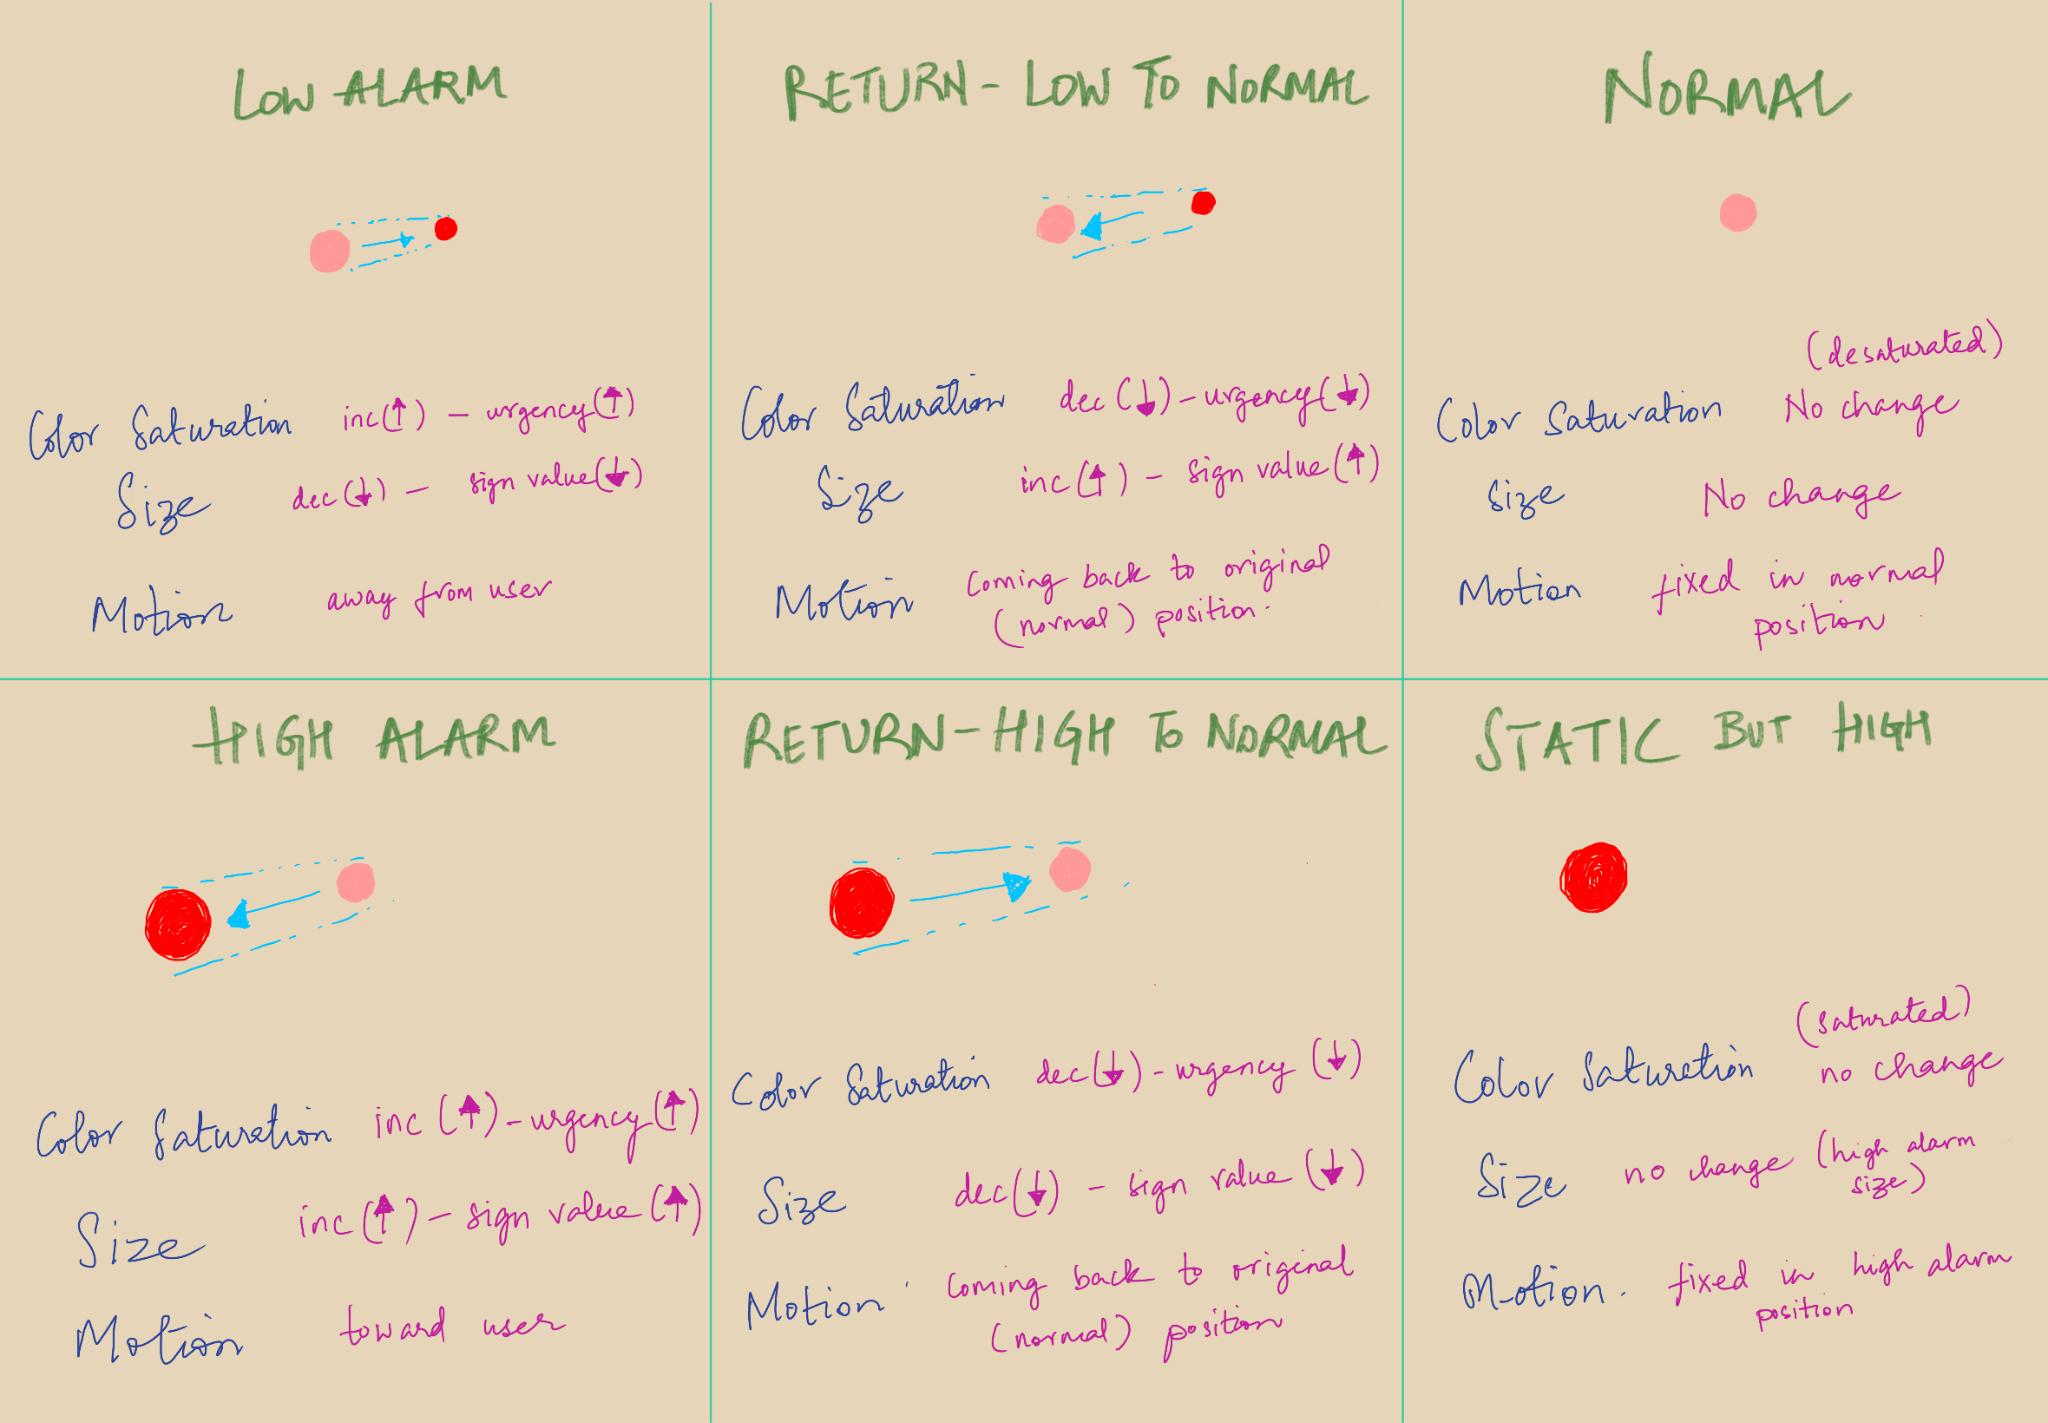 LOW ALARM
Color Saturation inc(↑) - urgency(↑)
Size dec(↓) - sign value(↓)
Motion away from user
RETURN - LOW TO NORMAL
Color Saturation dec(↓) - urgency(↓)
Size inc(↑) - sign value(↑)
Motion Coming back to original
(normal) position.
NORMAL
(desaturated)
Color Saturation No change
Size No change
Motion fixed in normal
position
HIGH ALARM
Color Saturation inc(↑) - urgency(↑)
Size inc(↑) - sign value(↑)
Motion toward user
RETURN - HIGH TO NORMAL
Color Saturation dec(↓) - urgency(↓)
Size dec(↓) - sign value(↓)
Motion Coming back to original
(normal) position
STATIC BUT HIGH
(saturated)
Color Saturation no change
Size no change (high alarm
size)
Motion. fixed in high alarm
position